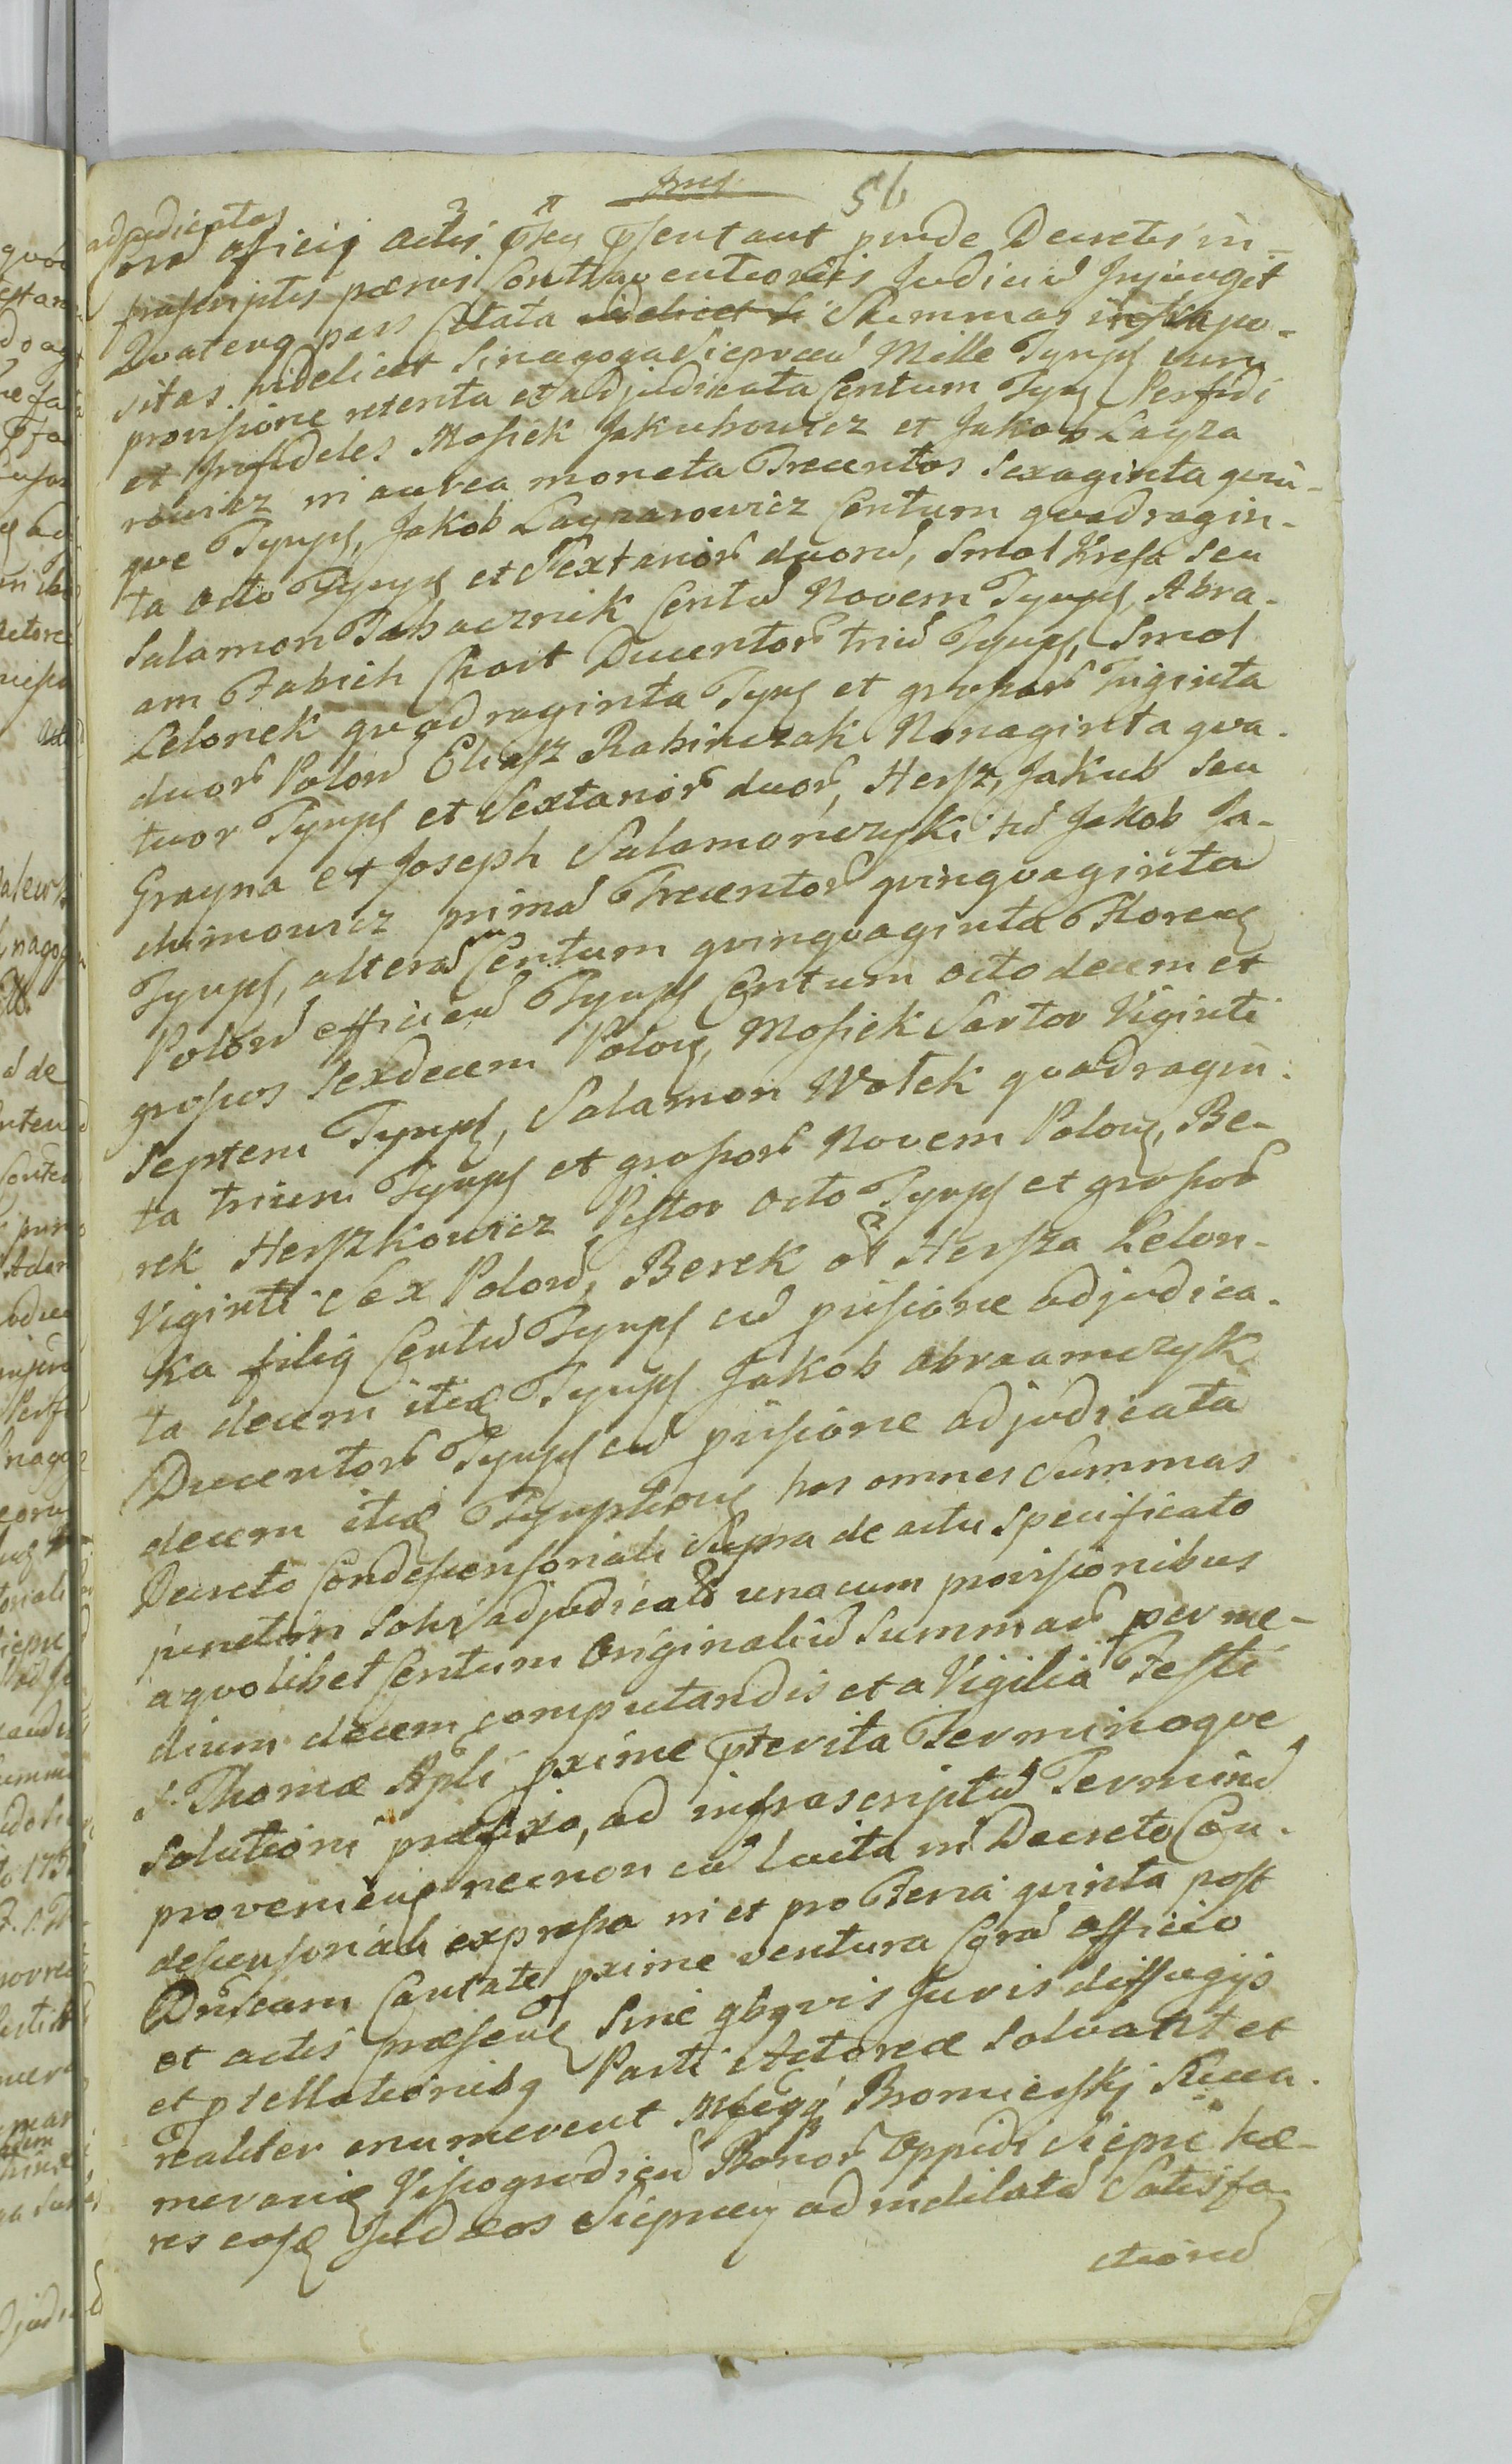 56
adjudicatas
Cora officij Actis pten ptentant pnde Decretis in-
frascriptis pœnas Contraventionis Judiciu Injungit
Quateng pars Citata videlicet Summas infrapo-
sitas videlicet Sinagoga Siepncen Mille Tynph cum
provisione retenta et adjudicata Centum Tynph Perfidi
et Infideles Mosiek Jakubowicz et Jakob Layza
rowicz in aurea moneta Trecentos Sexaginta quin-
que Tynph, Jakob Layzarowicz Centum quadragin-
ta octo Tynph et Sextanior duoru, Smol Kresa seu
Salamon Tabacznik Centu Novem Tynph, Abra-
am Fabich Chart Ducentor triu Tynph, Smol
Lelonek quadraginta Tynph et grossor Triginta
duor Polon Eliasz Rabinczak Nonaginta qua-
tuor Tynph et Sextanior duor, Hersz, Jakub seu
Grayna et Joseph Salamonczyski tu Jakob Ja-
chimowicz prima Trecentor quinquaginta
Tynph, altera Centum quinquaginta Floren
Polon efficien Tynph Centum octodecem et
grosos Sexdecem Polon, Mosiek Sartor Viginti
Septem Tynph, Salamon Wolek quadragin-
ta trium Tynph et grosor Novem Polon, Be-
rek Herszkowicz Pistor octo Tynph et grosor
Viginti Sex Polon, Berek ol Hersza Lelon-
ka filig Centu Tynph cu prisione adjudica-
ta decem iteq Tynph Jakob Abraamczyk
Ducentor Tynph cu prisione adjudicata
decem iteq Tynphon has omnes Summas
Decreto Condescensoriali Supra de actu specificato
punctim Solvi adjudicat unacum provisionibus
a quolibet Centum Originaliu Summar per me-
dium decem computandis et a Vigilia Festi
S. Thomæ Apli pxime pterita Terminoque
Solutioni præfixo, ad infrascriptu Terminu
provenien necnon cu lucta in Decreto Con-
descensoriali expressa ni et pro Feria quinta post
Dnicam Cantate pxime ventura Cora officio
et actis præsen Sine qbqvis Juris diffugijs
et ptellationibq Parti Actoreæ Solvant et
realiter enumerent Mfcgj Bromierskj Succa-
merariq Vissogrodien Bonor Oppidi Siepnc hæ-
res eosq Judæos Siepncen ad indilata Satisfa-
ctionu